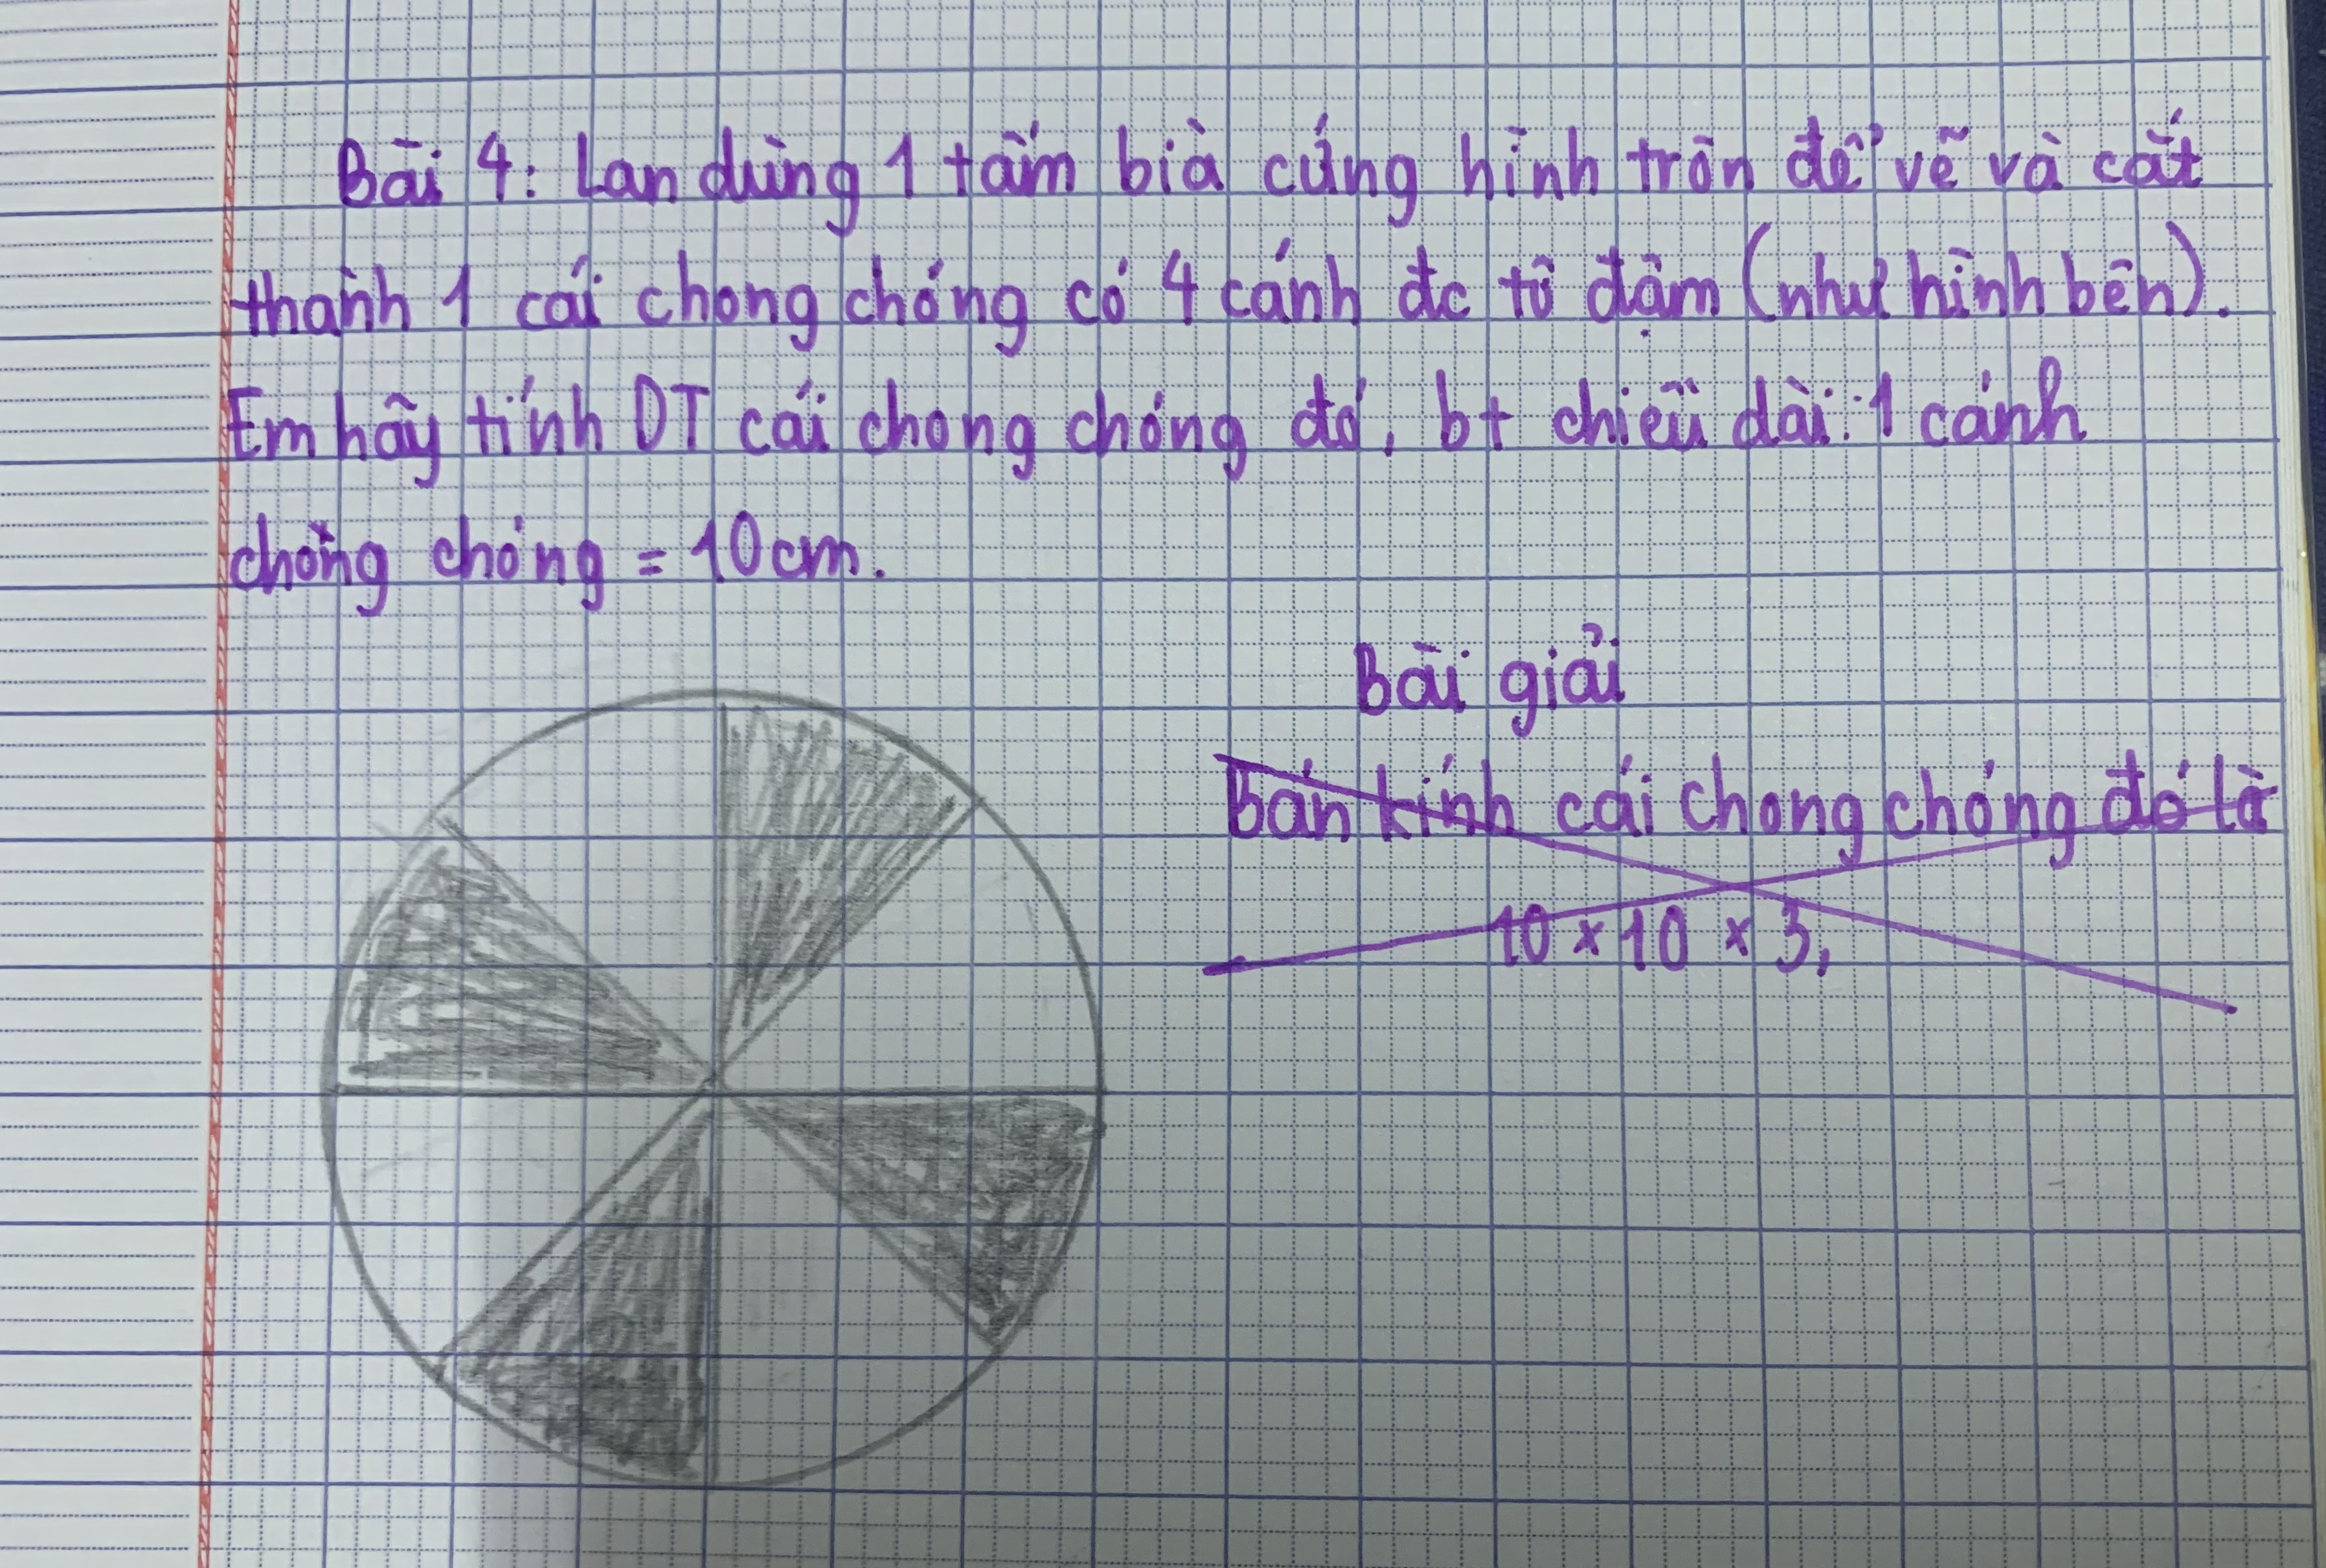 Bài 4: Lan dùng 1 tấm bìa cứng hình tròn để vẽ và cắt
thành 1 cái chong chóng có 4 cánh đc tô đậm (như hình bên).
Em hãy tính DT cái chong chóng đó, bt chiều dài 1 cánh
chong chóng = 10cm.
Bài giải
Bán kính cái chong chóng đó là
10 × 10 × 3,